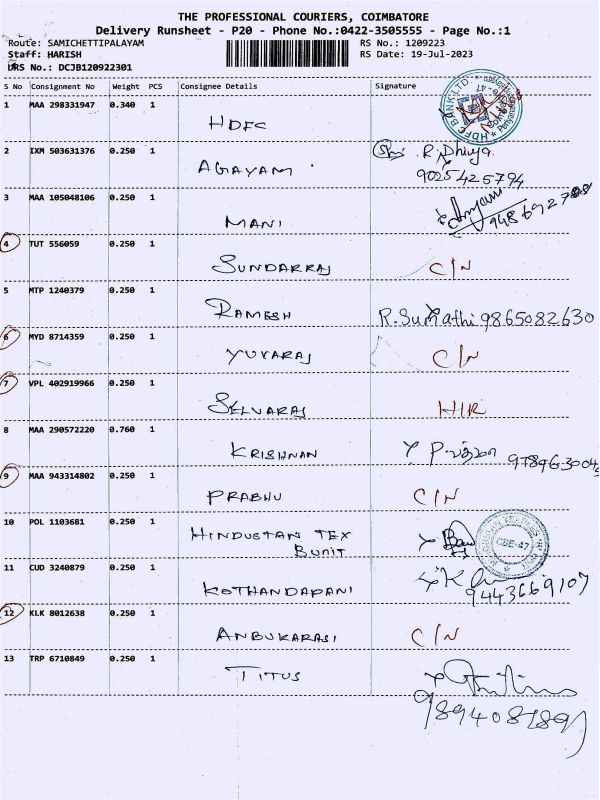 THE PROFESSIONAL COURIERS, COIMBATORE
Delivery Runsheet - P20 - Phone No.:0422-3505555 - Page No.:1
Route: SAMICHETTIPALAYAM RS No.: 1209223
Staff: HARISH RS Date: 19-Jul-2023
DRS No.: DCJB120922301
S No Consignment No Weight PCS Consignee Details Signature
1 MAA 298331947 0.340 1 HDFC HDFC BANK LTD
2 IXM 503631376 0.250 1 AGAYAM R. Dhivya
9025425794
3 MAA 105048106 0.250 1 MANI
4 TUT 556059 0.250 1 SUNDARRAJ C/N
5 MTP 1240379 0.250 1 RAMESH R.Sumathi 9865082630
6 MYD 8714359 0.250 1 YUVARAJ C/N
7 VPL 402919966 0.250 1 SELVARAJ H/R
8 MAA 290572220 0.760 1 KRISHNAN
9 MAA 943314802 0.250 1 PRABHU C/N
10 POL 1103681 0.250 1 HINDUSTAN TEX CBE-47
BUNIT
11 CUD 3240879 0.250 1 KOTHANDAPANI
9443669107
12 KLK 8012638 0.250 1 ANBUKARASI C/N
13 TRP 6710849 0.250 1 TITUS